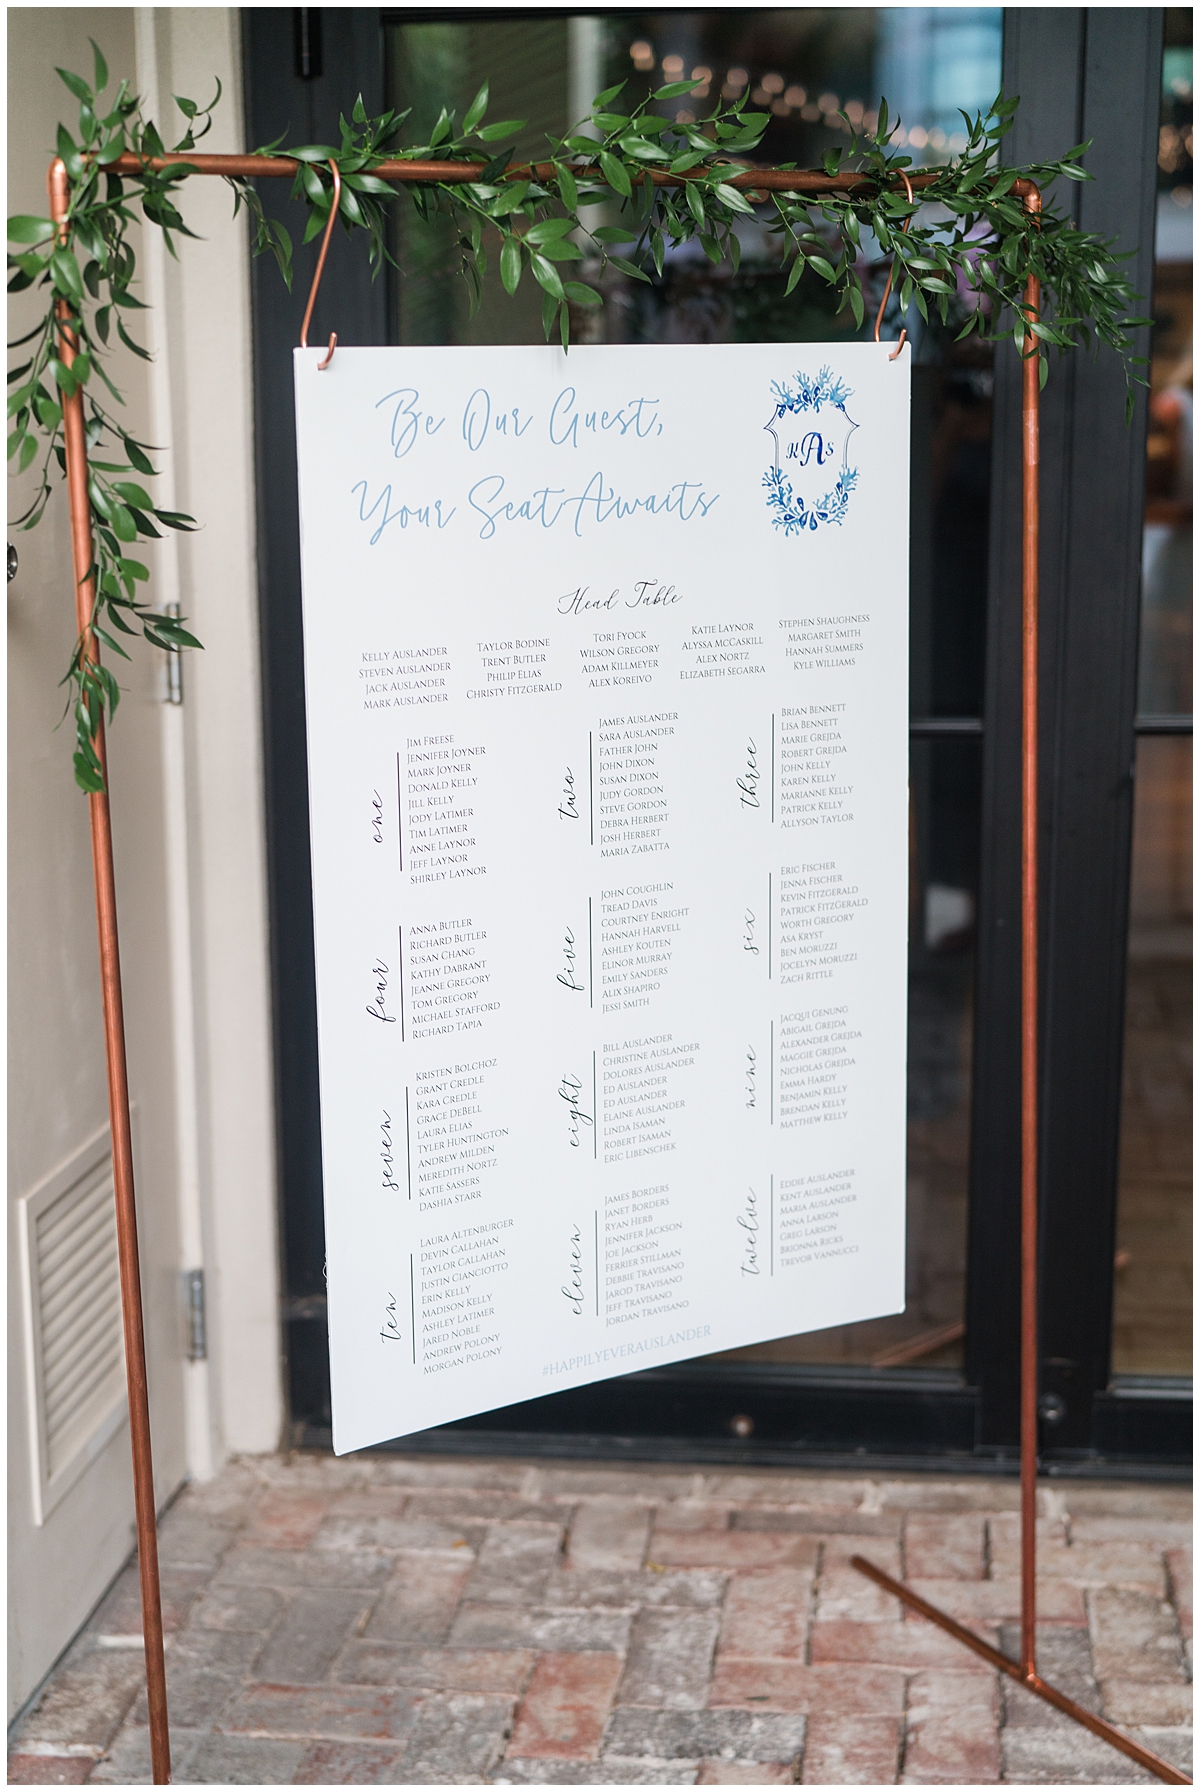 Be Our Guest,
Your Seat Awaits
K A S
Head Table
KELLY AUSLANDER
STEVEN AUSLANDER
JACK AUSLANDER
MARK AUSLANDER
TAYLOR BODINE
TRENT BUTLER
PHILIP ELIAS
CHRISTY FITZGERALD
TORI FYOCK
WILSON GREGORY
ADAM KILLMEYER
ALEX KOREIVO
KATIE LAYNOR
ALYSSA MCCASKILL
ALEX NORTZ
ELIZABETH SEGARRA
STEPHEN SHAUGHNESS
MARGARET SMITH
HANNAH SUMMERS
KYLE WILLIAMS
one
JIM FREESE
JENNIFER JOYNER
MARK JOYNER
DONALD KELLY
JILL KELLY
JODY LATIMER
TIM LATIMER
ANNE LAYNOR
JEFF LAYNOR
SHIRLEY LAYNOR
two
JAMES AUSLANDER
SARA AUSLANDER
FATHER JOHN
JOHN DIXON
SUSAN DIXON
JUDY GORDON
STEVE GORDON
DEBRA HERBERT
JOSH HERBERT
MARIA ZABATTA
three
BRIAN BENNETT
LISA BENNETT
MARIE GREJDA
ROBERT GREJDA
JOHN KELLY
KAREN KELLY
MARIANNE KELLY
PATRICK KELLY
ALLYSON TAYLOR
four
ANNA BUTLER
RICHARD BUTLER
SUSAN CHANG
KATHY DABRANT
JEANNE GREGORY
TOM GREGORY
MICHAEL STAFFORD
RICHARD TAPIA
five
JOHN COUGHLIN
TREAD DAVIS
COURTNEY ENRIGHT
HANNAH HARVELL
ASHLEY KOUTEN
ELINOR MURRAY
EMILY SANDERS
ALIX SHAPIRO
JESSI SMITH
six
ERIC FISCHER
JENNA FISCHER
KEVIN FITZGERALD
PATRICK FITZGERALD
WORTH GREGORY
ASA KRYST
BEN MORUZZI
JOCELYN MORUZZI
ZACH RITTLE
seven
KRISTEN BOLCHOZ
GRANT CREDLE
KARA CREDLE
GRACE DEBELL
LAURA ELIAS
TYLER HUNTINGTON
ANDREW MILDEN
MEREDITH NORTZ
KATIE SASSERS
DASHIA STARR
eight
BILL AUSLANDER
CHRISTINE AUSLANDER
DOLORES AUSLANDER
ED AUSLANDER
ED AUSLANDER
ELAINE AUSLANDER
LINDA ISAMAN
ROBERT ISAMAN
ERIC LIBENSCHEK
nine
JACQUI GENUNG
ABIGAIL GREJDA
ALEXANDER GREJDA
MAGGIE GREJDA
NICHOLAS GREJDA
EMMA HARDY
BENJAMIN KELLY
BRENDAN KELLY
MATTHEW KELLY
ten
LAURA ALTENBURGER
DEVIN CALLAHAN
TAYLOR CALLAHAN
JUSTIN CIANCIOTTO
ERIN KELLY
MADISON KELLY
ASHLEY LATIMER
JARED NOBLE
ANDREW POLONY
MORGAN POLONY
eleven
JAMES BORDERS
JANET BORDERS
RYAN HERB
JENNIFER JACKSON
JOE JACKSON
FERRIER STILLMAN
DEBBIE TRAVISANO
JAROD TRAVISANO
JEFF TRAVISANO
JORDAN TRAVISANO
twelve
EDDIE AUSLANDER
KENT AUSLANDER
MARIA AUSLANDER
ANNA LARSON
GREG LARSON
BRIONNA RICKS
TREVOR VANNUCCI
#HAPPILYEVERAUSLANDER